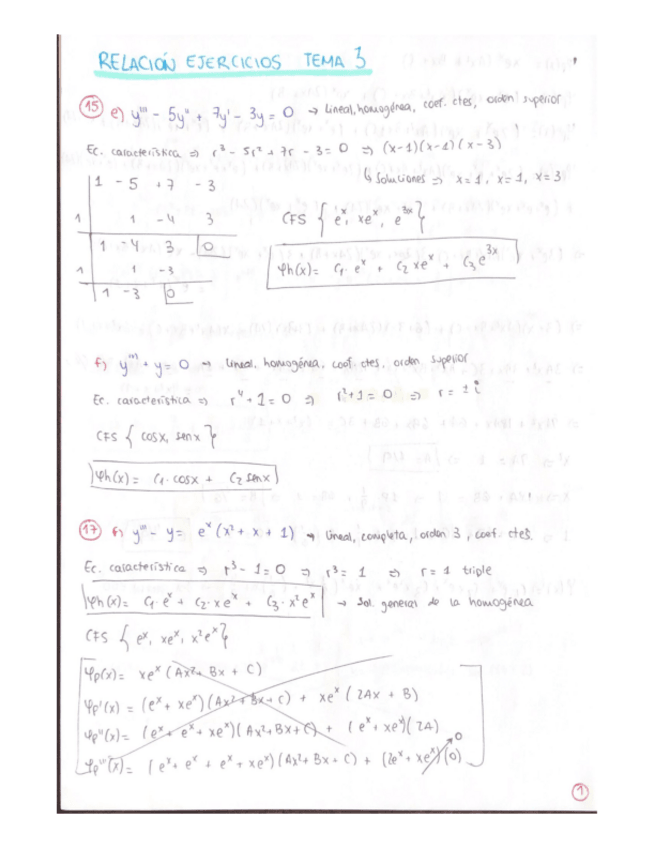 RELACIÓN EJERCICIOS TEMA 3
15 e) y''' - 5y'' + 7y' - 3y = 0 → Lineal, homogénea, coef. ctes, orden superior
Ec. característica ⇒ r³ - 5r² + 7r - 3 = 0 ⇒ (x-1)(x-1)(x-3)
↳ Soluciones ⇒ x=1, x=1, x=3
1 -5 +7 -3
1 1 -4 3
1 -4 3 0
1 1 -3
1 -3 0
CFS { eˣ, xeˣ, e³ˣ }
φh(x) = C₁·eˣ + C₂ xeˣ + C₃ e³ˣ
f) y'''' + y = 0 → lineal, homogénea, coef. ctes, orden superior
Ec. característica ⇒ r⁴ + 1 = 0 ⇒ r²+1 = 0 ⇒ r = ± i
CFS { cosx, senx }
φh(x) = C₁·cosx + C₂ senx
17 f) y''' - y = eˣ (x² + x + 1) → Lineal, completa, orden 3, coef. ctes.
Ec. característica ⇒ r³ - 1 = 0 ⇒ r³ = 1 ⇒ r = 1 triple
φh(x) = C₁·eˣ + C₂·xeˣ + C₃·x²eˣ → Sol. general de la homogénea
CFS { eˣ, xeˣ, x²eˣ }
φp(x) = xeˣ (Ax² + Bx + C)
φp'(x) = (eˣ + xeˣ)(Ax² + Bx + C) + xeˣ (2Ax + B)
φp''(x) = (eˣ + eˣ + xeˣ)(Ax² + Bx + C) + (eˣ + xeˣ)(2A)
φp'''(x) = (eˣ + eˣ + eˣ + xeˣ)(Ax² + Bx + C) + (2eˣ + xeˣ)(0) 0
1